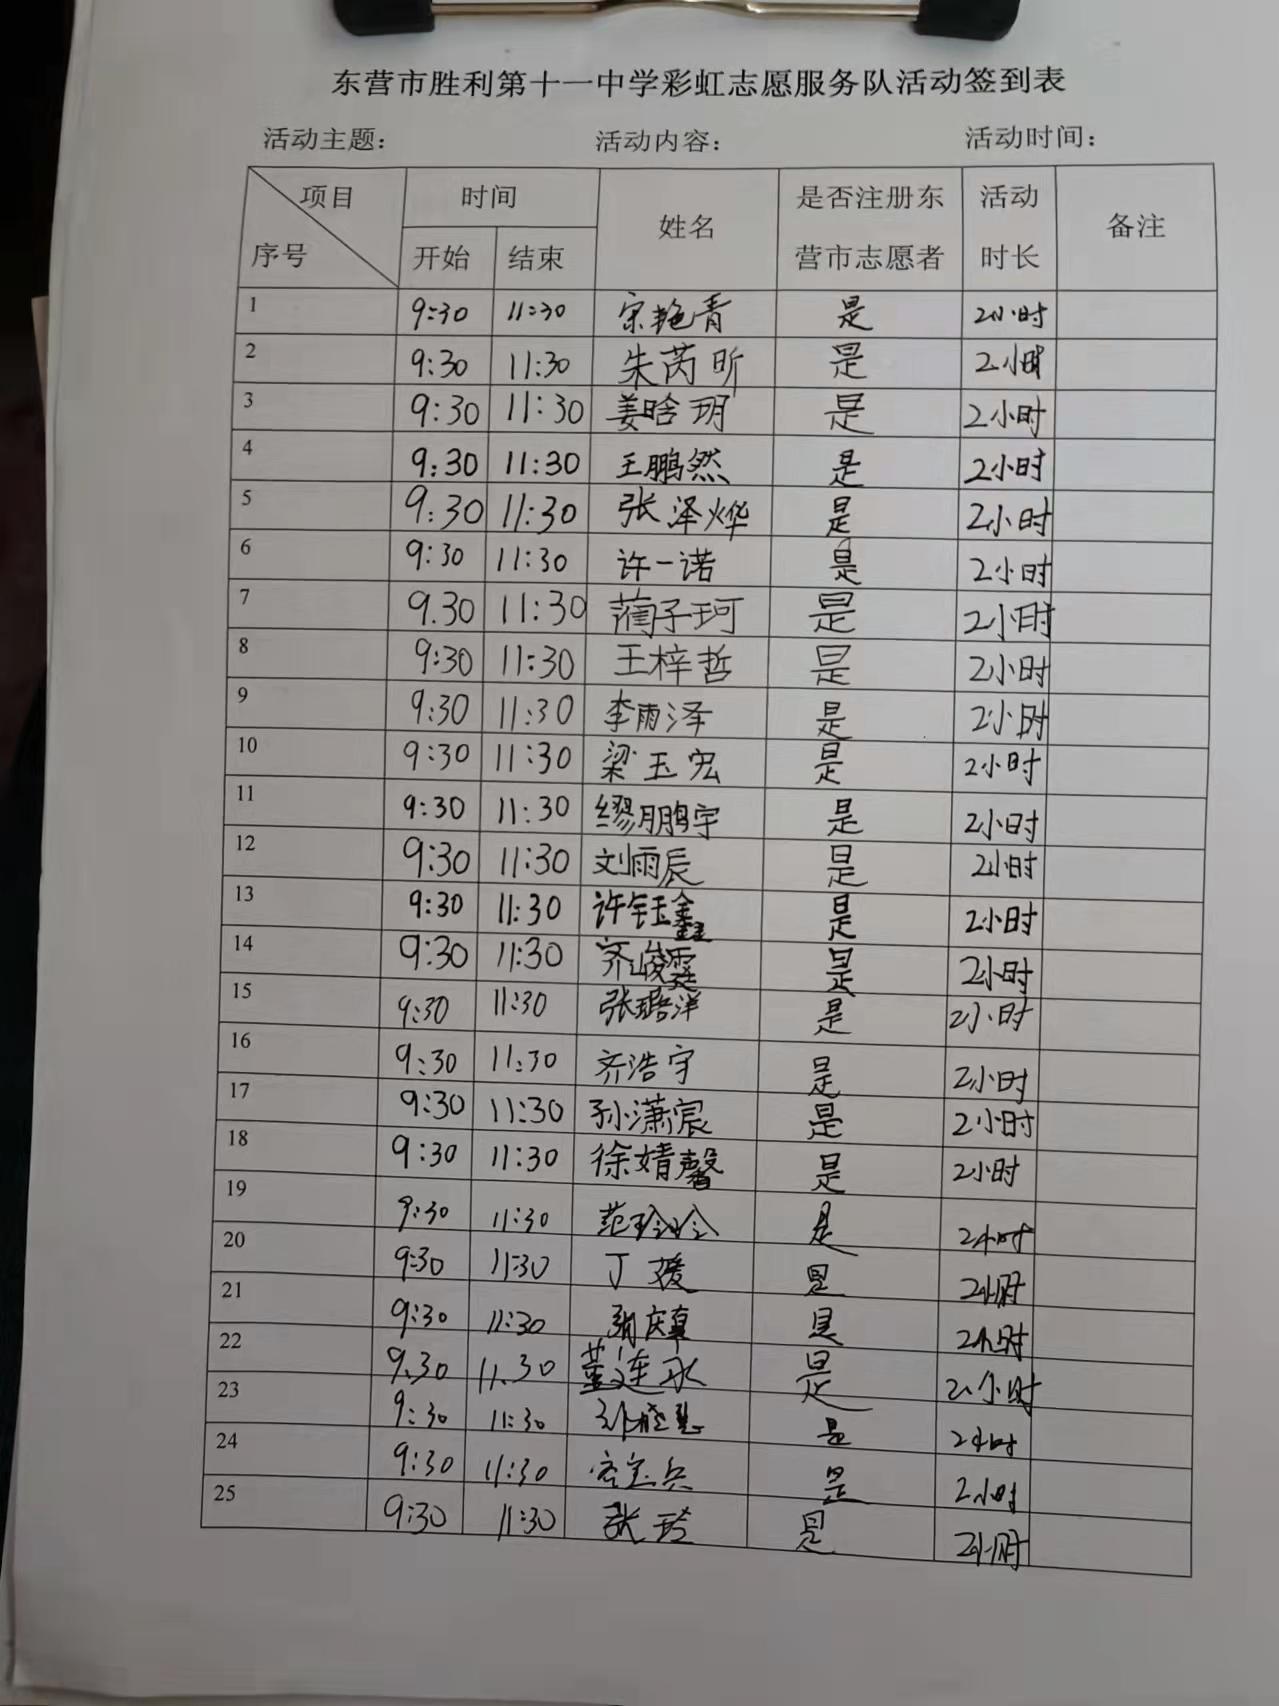 东营市胜利第十一中学彩虹志愿服务队活动签到表
活动主题： 活动内容： 活动时间：
项目 时间 姓名 是否注册东 活动 备注
序号 开始 结束 营市志愿者 时长
1 9:30 11:30 宋艳青 是 2小时
2 9:30 11:30 朱芮昕 是 2小时
3 9:30 11:30 姜晗玥 是 2小时
4 9:30 11:30 王鹏然 是 2小时
5 9:30 11:30 张泽烨 是 2小时
6 9:30 11:30 许一诺 是 2小时
7 9.30 11:30 蔺子珂 是 2小时
8 9:30 11:30 王梓哲 是 2小时
9 9:30 11:30 李雨泽 是 2小时
10 9:30 11:30 梁玉宏 是 2小时
11 9:30 11:30 缪鹏宇 是 2小时
12 9:30 11:30 刘雨辰 是 2小时
13 9:30 11:30 许钰鑫 是 2小时
14 9:30 11:30 齐峻霆 是 2小时
15 9:30 11:30 张璐洋 是 2小时
16 9:30 11:30 齐浩宇 是 2小时
17 9:30 11:30 孙潇宸 是 2小时
18 9:30 11:30 徐婧馨 是 2小时
19 9:30 11:30 范玲玲 是 2小时
20 9:30 11:30 丁媛 是 2小时
21 9:30 11:30 是 2小时
22 9.30 11.30 董连水 是 2小时
23 9:30 11:30 是 2小时
24 9:30 11:30 是 2小时
25 9:30 11:30 张玲 是 2小时